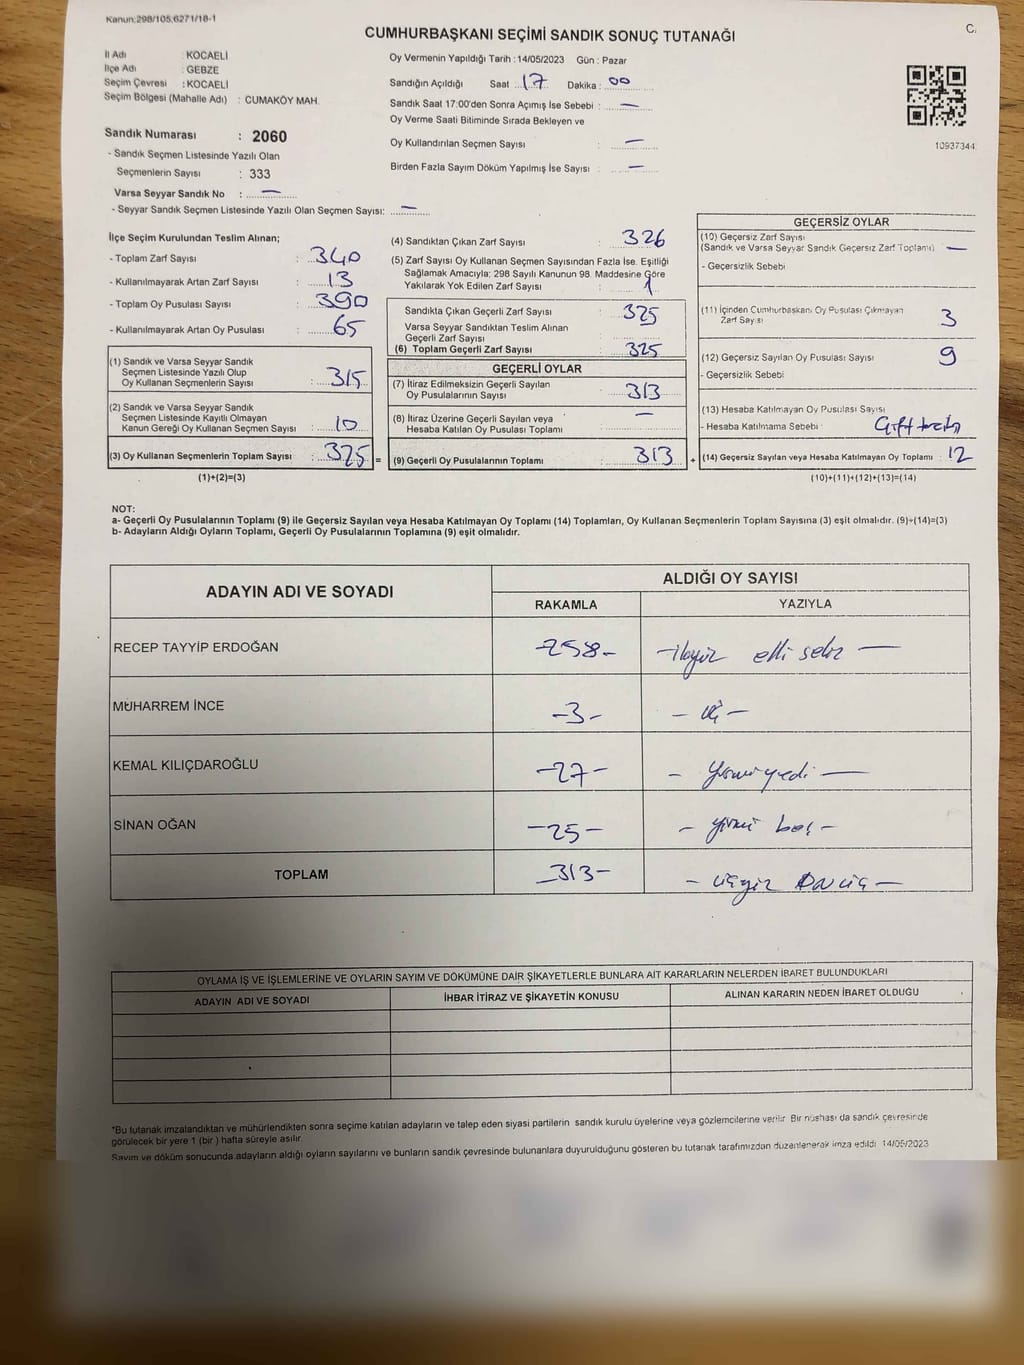 Kanun:298/105,6271/18-1
C.
CUMHURBAŞKANI SEÇİMİ SANDIK SONUÇ TUTANAĞI
İl Adı : KOCAELİ
İlçe Adı : GEBZE
Seçim Çevresi : KOCAELİ
Seçim Bölgesi (Mahalle Adı) : CUMAKÖY MAH.
Sandık Numarası : 2060
- Sandık Seçmen Listesinde Yazılı Olan
Seçmenlerin Sayısı : 333
Varsa Seyyar Sandık No : —
- Seyyar Sandık Seçmen Listesinde Yazılı Olan Seçmen Sayısı: —
Oy Vermenin Yapıldığı Tarih : 14/05/2023 Gün : Pazar
Sandığın Açıldığı Saat : 17 Dakika : 00
Sandık Saat 17:00'den Sonra Açımış İse Sebebi : —
Oy Verme Saati Bitiminde Sırada Bekleyen ve
Oy Kullandırılan Seçmen Sayısı : —
Birden Fazla Sayım Döküm Yapılmış İse Sayısı : —
10937344
İlçe Seçim Kurulundan Teslim Alınan;
- Toplam Zarf Sayısı : 340
- Kullanılmayarak Artan Zarf Sayısı : 13
- Toplam Oy Pusulası Sayısı : 390
- Kullanılmayarak Artan Oy Pusulası : 65
(1) Sandık ve Varsa Seyyar Sandık
Seçmen Listesinde Yazılı Olup
Oy Kullanan Seçmenlerin Sayısı : 315
(2) Sandık ve Varsa Seyyar Sandık
Seçmen Listesinde Kayıtlı Olmayan
Kanun Gereği Oy Kullanan Seçmen Sayısı : 10
(3) Oy Kullanan Seçmenlerin Toplam Sayısı : 325 =
(1)+(2)=(3)
(4) Sandıktan Çıkan Zarf Sayısı : 326
(5) Zarf Sayısı Oy Kullanan Seçmen Sayısından Fazla İse. Eşitliği
Sağlamak Amacıyla; 298 Sayılı Kanunun 98. Maddesine Göre
Yakılarak Yok Edilen Zarf Sayısı : 1
Sandıkta Çıkan Geçerli Zarf Sayısı : 325
Varsa Seyyar Sandıktan Teslim Alınan
Geçerli Zarf Sayısı :
(6) Toplam Geçerli Zarf Sayısı : 325
GEÇERLİ OYLAR
(7) İtiraz Edilmeksizin Geçerli Sayılan
Oy Pusulalarının Sayısı : 313
(8) İtiraz Üzerine Geçerli Sayılan veya
Hesaba Katılan Oy Pusulası Toplamı : —
(9) Geçerli Oy Pusulalarının Toplamı : 313 +
GEÇERSİZ OYLAR
(10) Geçersiz Zarf Sayısı
(Sandık ve Varsa Seyyar Sandık Geçersiz Zarf Toplamı) —
- Geçersizlik Sebebi
(11) İçinden Cumhurbaşkanı Oy Pusulası Çıkmayan
Zarf Sayısı 3
(12) Geçersiz Sayılan Oy Pusulası Sayısı 9
- Geçersizlik Sebebi
(13) Hesaba Katılmayan Oy Pusulası Sayısı
- Hesaba Katılmama Sebebi :
(14) Geçersiz Sayılan veya Hesaba Katılmayan Oy Toplamı : 12
(10)+(11)+(12)+(13)=(14)
NOT:
a- Geçerli Oy Pusulalarının Toplamı (9) ile Geçersiz Sayılan veya Hesaba Katılmayan Oy Toplamı (14) Toplamları, Oy Kullanan Seçmenlerin Toplam Sayısına (3) eşit olmalıdır. (9)+(14)=(3)
b- Adayların Aldığı Oyların Toplamı, Geçerli Oy Pusulalarının Toplamına (9) eşit olmalıdır.
ADAYIN ADI VE SOYADI ALDIĞI OY SAYISI
RAKAMLA YAZIYLA
RECEP TAYYİP ERDOĞAN -258- -ikiyüz elli sekiz —
MUHARREM İNCE -3- - üç -
KEMAL KILIÇDAROĞLU -27- - yirmi yedi —
SİNAN OĞAN -25- - yirmi beş -
TOPLAM -313- - üçyüz on üç -
OYLAMA İŞ VE İŞLEMLERİNE VE OYLARIN SAYIM VE DÖKÜMÜNE DAİR ŞİKAYETLERLE BUNLARA AİT KARARLARIN NELERDEN İBARET BULUNDUKLARI
ADAYIN ADI VE SOYADI İHBAR İTİRAZ VE ŞİKAYETİN KONUSU ALINAN KARARIN NEDEN İBARET OLDUĞU
*Bu tutanak imzalandıktan ve mühürlendikten sonra seçime katılan adayların ve talep eden siyasi partilerin sandık kurulu üyelerine veya gözlemcilerine verilir. Bir nüshası da sandık çevresinde
görülecek bir yere 1 (bir ) hafta süreyle asılır.
Sayım ve döküm sonucunda adayların aldığı oyların sayılarını ve bunların sandık çevresinde bulunanlara duyurulduğunu gösteren bu tutanak tarafımızdan düzenlenerek imza edildi 14/05/2023